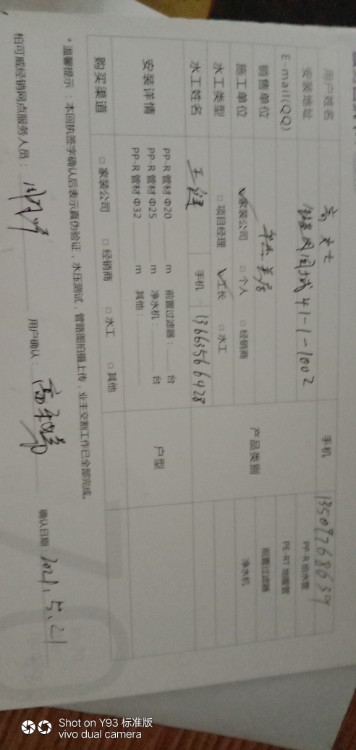 用户姓名 高女士 手机
安装地址 41-1-1002
E-mail(QQ) 产品类别 PP-R 给水管
销售单位 PE-RT 地暖管
施工单位 ☑家装公司 □个人 □经销商 前置过滤器
水工类型 □项目经理 ☑工长 □水工 净水机
水工姓名 手机 13663566928
安装详情 PP-R 管材 Φ20 m 前置过滤器: 台 户型
PP-R 管材 Φ25 m 净水机: 台
PP-R 管材 Φ32 m 其他:
购买渠道 □家装公司 □经销商 □水工 □其他
* 温馨提示:本回执签字确认后表示真伪验证,水压测试,管路图拍摄上传,业主交割工作已全部完成。
柏可威经销网点服务人员: 用户确认: 确认日期: 2021.5.21
Shot on Y93 标准版
vivo dual camera